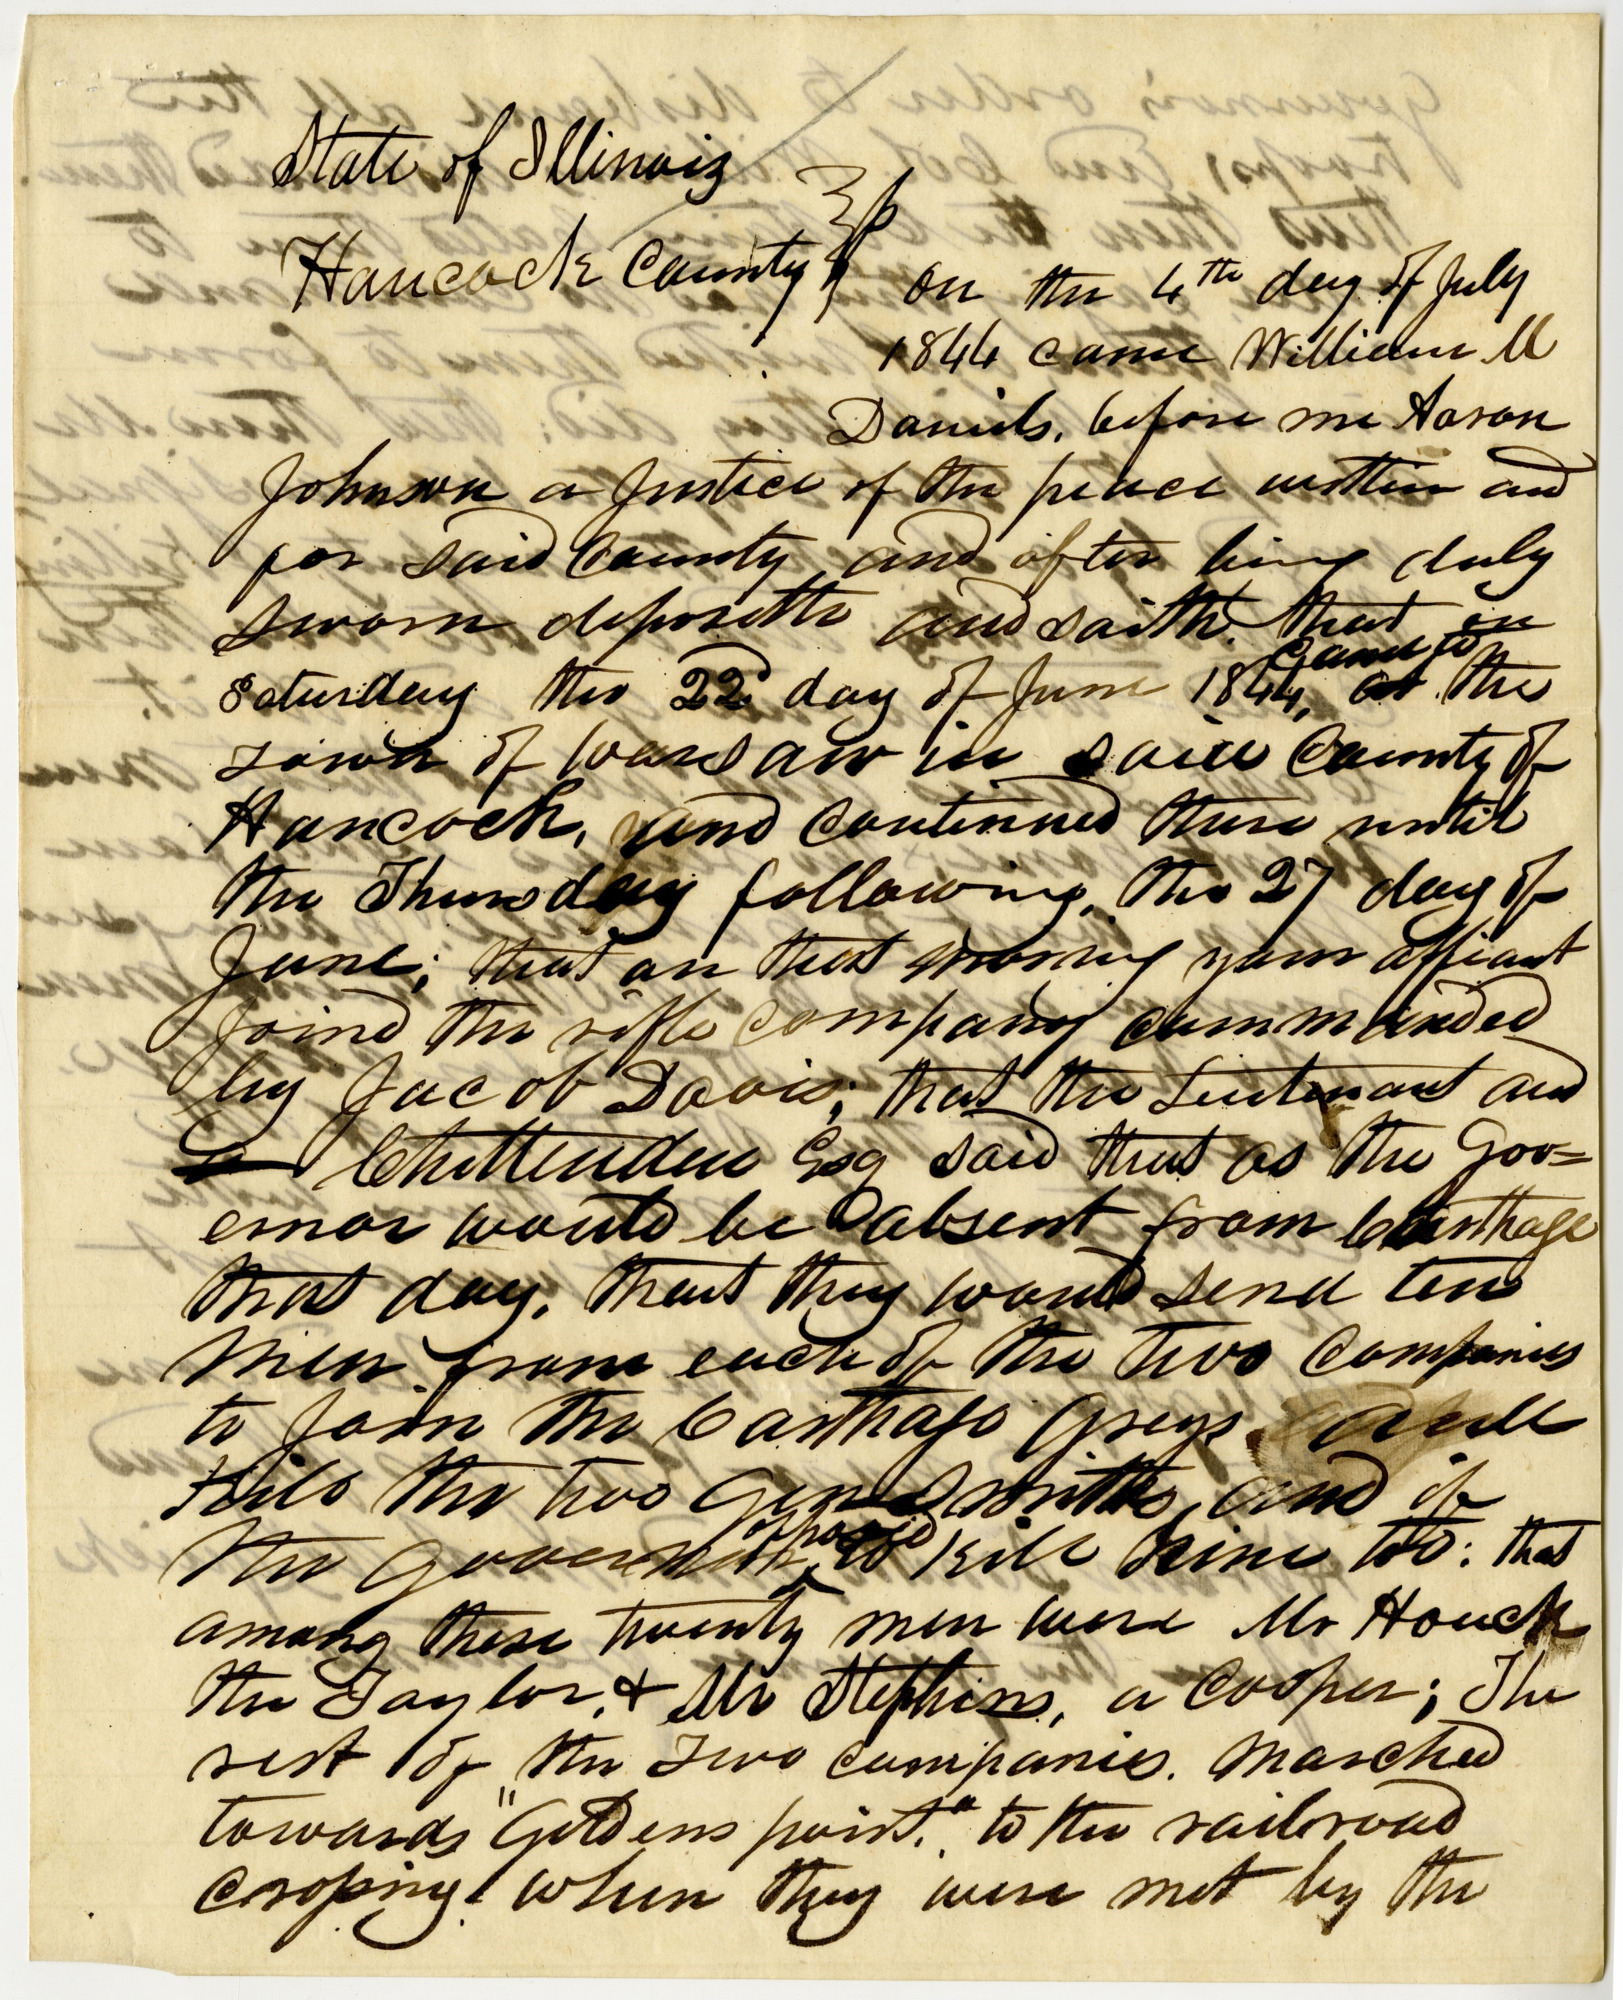 State of Illinois
Hancock County } On the 4th day of July
1844 came William M
Daniels, before me Aaron
Johnson a Justice of the peace within and
for said County and after being duly
sworn deposeth and saith that on
Saturday the 22d day of June 1844, came to the
Town of Warsaw in said County of
Hancock, and continued there until
the Thursday following, the 27 day of
June; that on that morning your affiant
joined the rifle company commanded
by Jacob Davis; that the Lieutenant and
Chittenden Esq said that as the Gov=
ernor would be absent from Carthage
that day, that they would send ten
men from each of the two companies
to join the Carthage Greys
kill the two Gen Smiths, and if
the governor opposed to kill him too: that
among these twenty men were Mr Houck
the Taylor, & Mr Stephins, a Cooper; The
rest of the Two companies. marched
towards "Goldens point." to the railroad
crossing when they were met by the